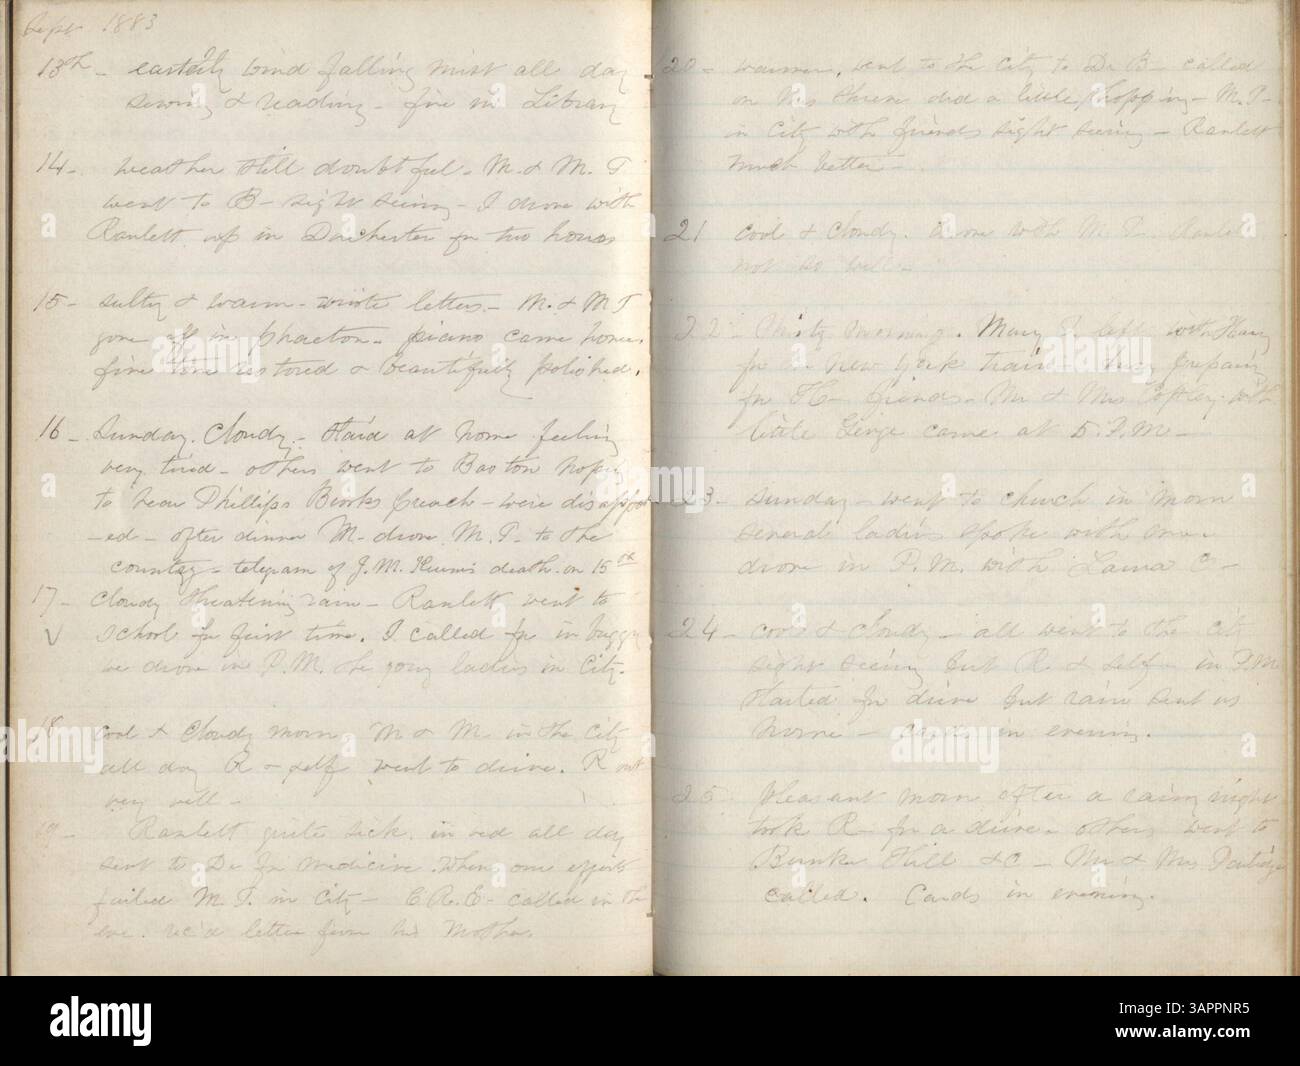 Sept 1883
13th - easterly wind falling mist all day
sewing & reading - fire in Library
14 - weather still doubtful - M. & M. T
went to B - sight seeing - I drove with
Ranlett up in Dorchester for two hours
15 - sultry & warm - wrote letters - M. & M T
gone off in phaeton - piano came home
fine tone restored & beautifully polished.
16 - Sunday. Cloudy - staid at home feeling
very tired - others went to Boston hoping
to hear Phillips Brooks preach - were disappoint
-ed - after dinner M. drove M. T. to the
country - telegram of J. M. death on 15th
17 - Cloudy threatening rain - Ranlett went to
V school for first time. I called for in buggy
we drove in P.M. the young ladies in City.
18 cool & cloudy morn M & M. in the City
all day R & self went to drive. R not
very well -
19 - Ranlett quite sick in bed all day
sent to Dr for medicine when our efforts
failed M. T. in City - C R. E - called in the
eve. rec'd letter from his Mother.
20 - warmer, went to the City to Dr B - called
on did a little shopping - M. T -
in City with friends sight seeing - Ranlett
much better -
21 cool & cloudy. drove with M. T. Ranlett
not so well -
22 - morning. Mary T. left with Harry
for New York train - busy preparing
for friends - Mr & Mrs with
little came at 5. P.M -
23 - Sunday - went to church in morn
several ladies spoke with me -
drove in P.M. with Laura C -
24 - cool & cloudy - all went to the city
sight seeing but R. & self - in P.M
started for drive but rain sent us
home - cards in evening.
25 Pleasant morn after a rainy night
took R - for a drive - others went to
Bunker Hill &c - Mr & Mrs Partridge
called. Cards in evening.
alamy
www.alamy.com
Image ID: 3APPNR5